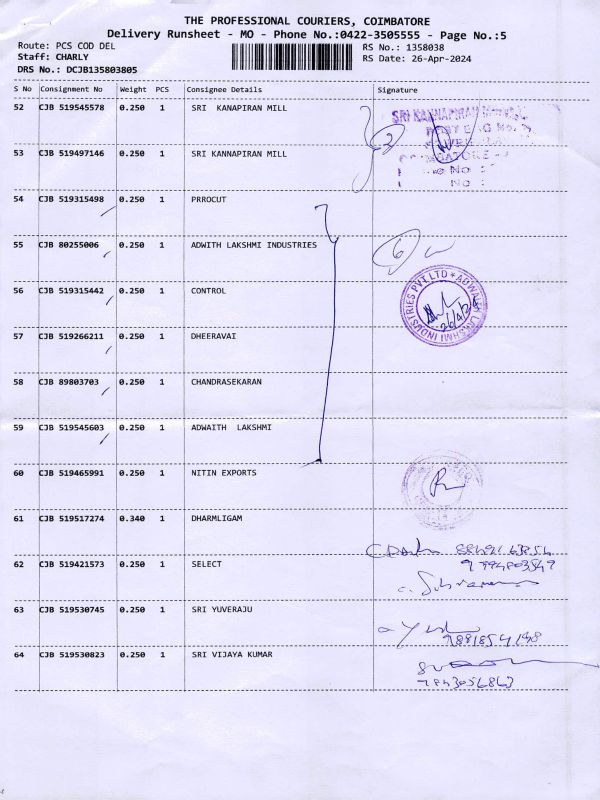 THE PROFESSIONAL COURIERS, COIMBATORE
Delivery Runsheet - MO - Phone No.:0422-3505555 - Page No.:5
Route: PCS COD DEL RS No.: 1358038
Staff: CHARLY RS Date: 26-Apr-2024
DRS No.: DCJB135803805
S No Consignment No Weight PCS Consignee Details Signature
52 CJB 519545578 0.250 1 SRI  KANAPIRAN MILL
53 CJB 519497146 0.250 1 SRI KANNAPIRAN MILL
54 CJB 519315498 0.250 1 PRROCUT
55 CJB 80255006 0.250 1 ADWITH LAKSHMI INDUSTRIES
56 CJB 519315442 0.250 1 CONTROL
ADWAITH LAKSHMI INDUSTRIES PVT.LTD
57 CJB 519266211 0.250 1 DHEERAVAI
58 CJB 89803703 0.250 1 CHANDRASEKARAN
59 CJB 519545603 0.250 1 ADWAITH  LAKSHMI
60 CJB 519465991 0.250 1 NITIN EXPORTS
61 CJB 519517274 0.340 1 DHARMLIGAM
62 CJB 519421573 0.250 1 SELECT
63 CJB 519530745 0.250 1 SRI YUVERAJU
64 CJB 519530823 0.250 1 SRI VIJAYA KUMAR